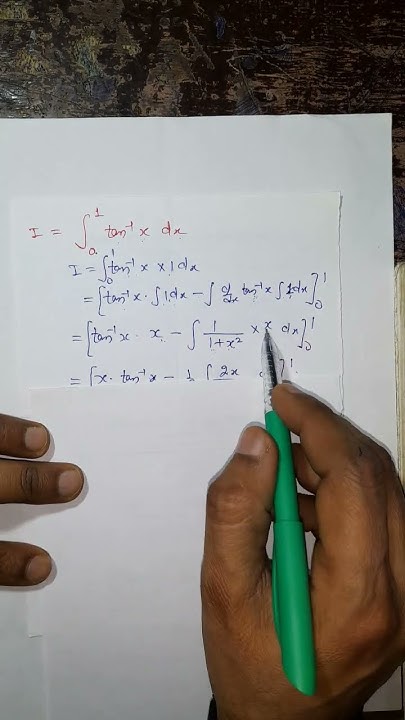 I = ∫ₐ¹ tan⁻¹x dx
I = ∫₀¹ tan⁻¹x × 1 dx
= [tan⁻¹x · ∫1dx − ∫ d/dx tan⁻¹x ∫1dx]₀¹
= [tan⁻¹x · x − ∫ 1/(1+x²) × x dx]₀¹
= [x · tan⁻¹x − 1 ∫ 2x ]¹